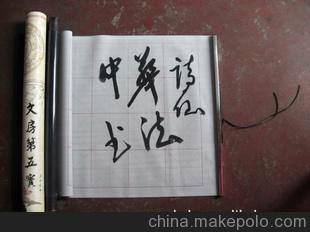 文房第五寶
中華
书法
詩仙
www.makepolo.com